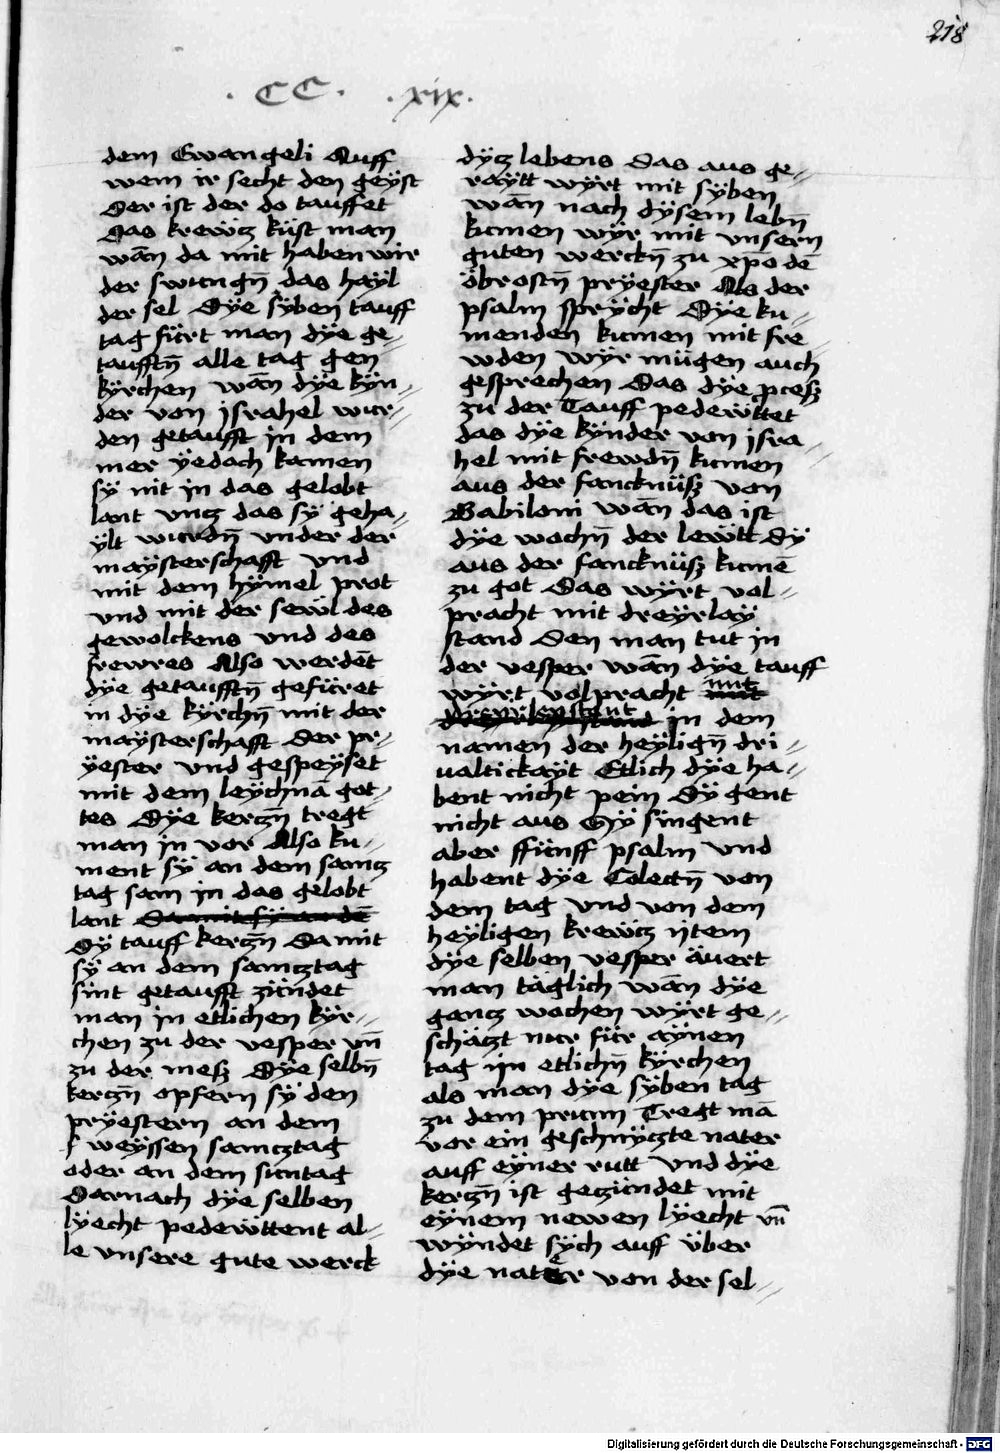 218
. CC . . xix .
dem Ewangeli Auff
wem ir secht den geÿst
Der ist der do tauffet
Das krewcz küst man
wān da mit haben wir
der swungn̄ das haÿl
der sel Dÿe sÿben tauff
tag fürt man dÿe ge-
taufftn̄ alle tag gen
kÿrchen wān dÿe kÿn-
der von jsrahel wur-
den getaufft in dem
mer ÿedoch kamen
sÿ nit in das gelobt
lant vncz das sÿ geha-
ÿlt wurdn̄ vnder der
maÿsterschafft vnd
mit dem hÿmel prot
vnd mit der sewl des
gewolckens vnd des
fewres Also werdēt
dÿe getaufftn̄ gefüret
in dÿe kÿrchn̄ mit der
maÿsterschafft der pr-
ÿester vnd gespeÿset
mit dem leÿchnā got-
tes Dÿe kerczn̄ tregt
man in vor Also ku-
ment sÿ an dem samcz
tag sam in das gelobt
lant Da mit sÿ an dē
Dÿ tauff kerczn̄ Da mit
sÿ an dem samcztag
sint getaufft zündet
man in etlichen kÿr-
chen zu der vesper vn̄
zu der mesz Dÿe selbn̄
kerczn̄ opfern sÿ den
prÿestern an dem
weÿssen samcztag
oder an dem suntag
Darnach dÿe selben
lÿecht pedewttent al-
le vnsere gute werck
dÿcz lebens Das aus ge-
raÿtt wÿrt mit sÿben
wān nach dÿsem lebn̄
kumen wÿr mit vnsern
guten werckn̄ zu xp̄o dē
öbrostn̄ prÿester Als der
psalm sprÿcht Dÿe ku-
menden kumen mit fre-
wden wÿr mügen auch
gesprechen Das dÿe ꝓcesz
zu der Tauff pedewttet
das dÿe kÿnder von jsra-
hel mit frewdn̄ kumen
aus der fancknüsz von
Babiloni wān das ist
dÿe wochn̄ der lewtt Dÿ
aus der fancknüsz kume
zu got Das wÿrt vol-
pracht mit dreÿrlaÿ
stand Den man tut in
der vesper wān dÿe tauff
wÿrt volpracht mit
in dem
namen der heÿlign̄ dri-
ualtickaÿt Etlich dÿe ha-
bent nicht pein Dÿ gent
nicht aus Sÿ singent
aber ffünff psalm vnd
habent dÿe Colectn̄ von
dem tag vnd von dem
heÿligen krewcz item
dÿe selben vesper äuert
man täglich wān dÿe
gancz wochen wÿrt ge-
schäczt nur für aÿnen
tag in etlichn̄ kÿrchen
als man dÿe sÿben tag
zu dem prunn Tregt mā
vor ein geschnÿczte nater
auff eÿner rutt vnd dÿe
kerczn̄ ist geczündet mit
eÿnem newen lÿecht vn̄
wÿndet sÿch auff über
dÿe nater von der sel-
Digitalisierung gefördert durch die Deutsche Forschungsgemeinschaft - DFG